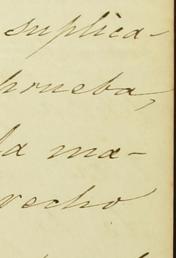 suplica-
prueba,
la ma-
recho